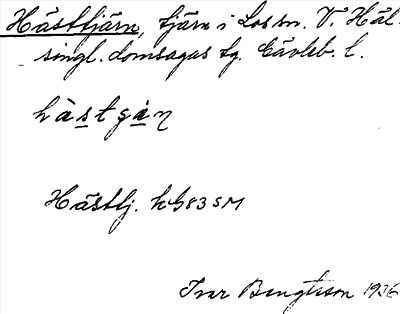 Hästtjärn, tjärn i Los sn. V. Häl-
singl. domsagas tg. Gävleb. l.
hàstgàn
Hästtj. kb 83 SM
Ivar Bengtsson 1936